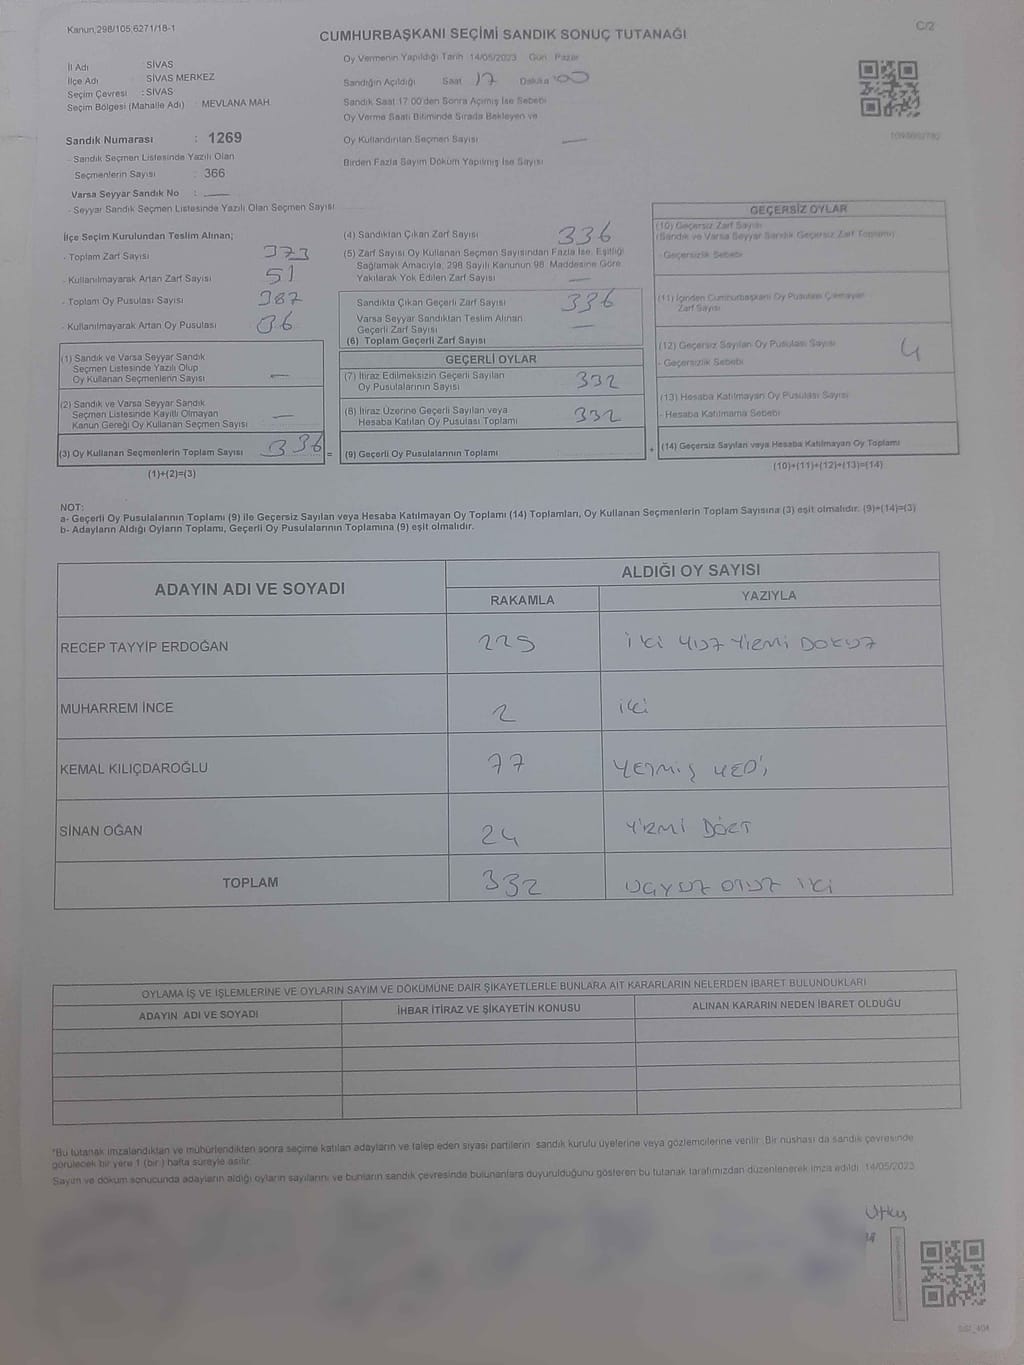 Kanun,298/105,6271/18-1
C/2
CUMHURBAŞKANI SEÇİMİ SANDIK SONUÇ TUTANAĞI
İl Adı : SİVAS
İlçe Adı : SİVAS MERKEZ
Seçim Çevresi : SİVAS
Seçim Bölgesi (Mahalle Adı) : MEVLANA MAH.
Sandık Numarası : 1269
- Sandık Seçmen Listesinde Yazılı Olan
Seçmenlerin Sayısı : 366
Varsa Seyyar Sandık No : —
- Seyyar Sandık Seçmen Listesinde Yazılı Olan Seçmen Sayısı
Oy Vermenin Yapıldığı Tarih 14/05/2023 Gün Pazar
Sandığın Açıldığı Saat 17 Dakika 00
Sandık Saat 17:00'den Sonra Açımış İse Sebebi
Oy Verme Saati Bitiminde Sırada Bekleyen ve
Oy Kullandırılan Seçmen Sayısı —
Birden Fazla Sayım Döküm Yapılmış İse Sayısı
İlçe Seçim Kurulundan Teslim Alınan;
- Toplam Zarf Sayısı 373
- Kullanılmayarak Artan Zarf Sayısı 51
- Toplam Oy Pusulası Sayısı 387
- Kullanılmayarak Artan Oy Pusulası 36
(1) Sandık ve Varsa Seyyar Sandık
Seçmen Listesinde Yazılı Olup
Oy Kullanan Seçmenlerin Sayısı —
(2) Sandık ve Varsa Seyyar Sandık
Seçmen Listesinde Kayıtlı Olmayan
Kanun Gereği Oy Kullanan Seçmen Sayısı —
(3) Oy Kullanan Seçmenlerin Toplam Sayısı 336 =
(1)+(2)=(3)
(4) Sandıktan Çıkan Zarf Sayısı 336
(5) Zarf Sayısı Oy Kullanan Seçmen Sayısından Fazla İse, Eşitliği
Sağlamak Amacıyla, 298 Sayılı Kanunun 98. Maddesine Göre
Yakılarak Yok Edilen Zarf Sayısı —
Sandıkta Çıkan Geçerli Zarf Sayısı 336
Varsa Seyyar Sandıktan Teslim Alınan
Geçerli Zarf Sayısı —
(6) Toplam Geçerli Zarf Sayısı
GEÇERLİ OYLAR
(7) İtiraz Edilmeksizin Geçerli Sayılan
Oy Pusulalarının Sayısı 332
(8) İtiraz Üzerine Geçerli Sayılan veya
Hesaba Katılan Oy Pusulası Toplamı 332
(9) Geçerli Oy Pusulalarının Toplamı +
GEÇERSİZ OYLAR
(10) Geçersiz Zarf Sayısı
(Sandık ve Varsa Seyyar Sandık Geçersiz Zarf Toplamı)
- Geçersizlik Sebebi
(11) İçinden Cumhurbaşkanı Oy Pusulası Çıkmayan
Zarf Sayısı
(12) Geçersiz Sayılan Oy Pusulası Sayısı 4
- Geçersizlik Sebebi
(13) Hesaba Katılmayan Oy Pusulası Sayısı
- Hesaba Katılmama Sebebi
(14) Geçersiz Sayılan veya Hesaba Katılmayan Oy Toplamı
(10)+(11)+(12)+(13)=(14)
NOT:
a- Geçerli Oy Pusulalarının Toplamı (9) ile Geçersiz Sayılan veya Hesaba Katılmayan Oy Toplamı (14) Toplamları, Oy Kullanan Seçmenlerin Toplam Sayısına (3) eşit olmalıdır. (9)+(14)=(3)
b- Adayların Aldığı Oyların Toplamı, Geçerli Oy Pusulalarının Toplamına (9) eşit olmalıdır.
ADAYIN ADI VE SOYADI ALDIĞI OY SAYISI
RAKAMLA YAZIYLA
RECEP TAYYİP ERDOĞAN 229 iki yüz yirmi DOKUZ
MUHARREM İNCE 2 iki
KEMAL KILIÇDAROĞLU 77 YETMİŞ YEDİ
SİNAN OĞAN 24 YİRMİ DÖRT
TOPLAM 332 ÜÇYÜZ OTUZ İKİ
OYLAMA İŞ VE İŞLEMLERİNE VE OYLARIN SAYIM VE DÖKÜMÜNE DAİR ŞİKAYETLERLE BUNLARA AİT KARARLARIN NELERDEN İBARET BULUNDUKLARI
ADAYIN ADI VE SOYADI İHBAR İTİRAZ VE ŞİKAYETİN KONUSU ALINAN KARARIN NEDEN İBARET OLDUĞU
*Bu tutanak imzalandıktan ve mühürlendikten sonra seçime katılan adayların ve talep eden siyasi partilerin sandık kurulu üyelerine veya gözlemcilerine verilir. Bir nüshası da sandık çevresinde
görülecek bir yere 1 (bir) hafta süreyle asılır.
Sayım ve döküm sonucunda adayların aldığı oyların sayılarını ve bunların sandık çevresinde bulunanlara duyurulduğunu gösteren bu tutanak tarafımızdan düzenlenerek imza edildi. 14/05/2023